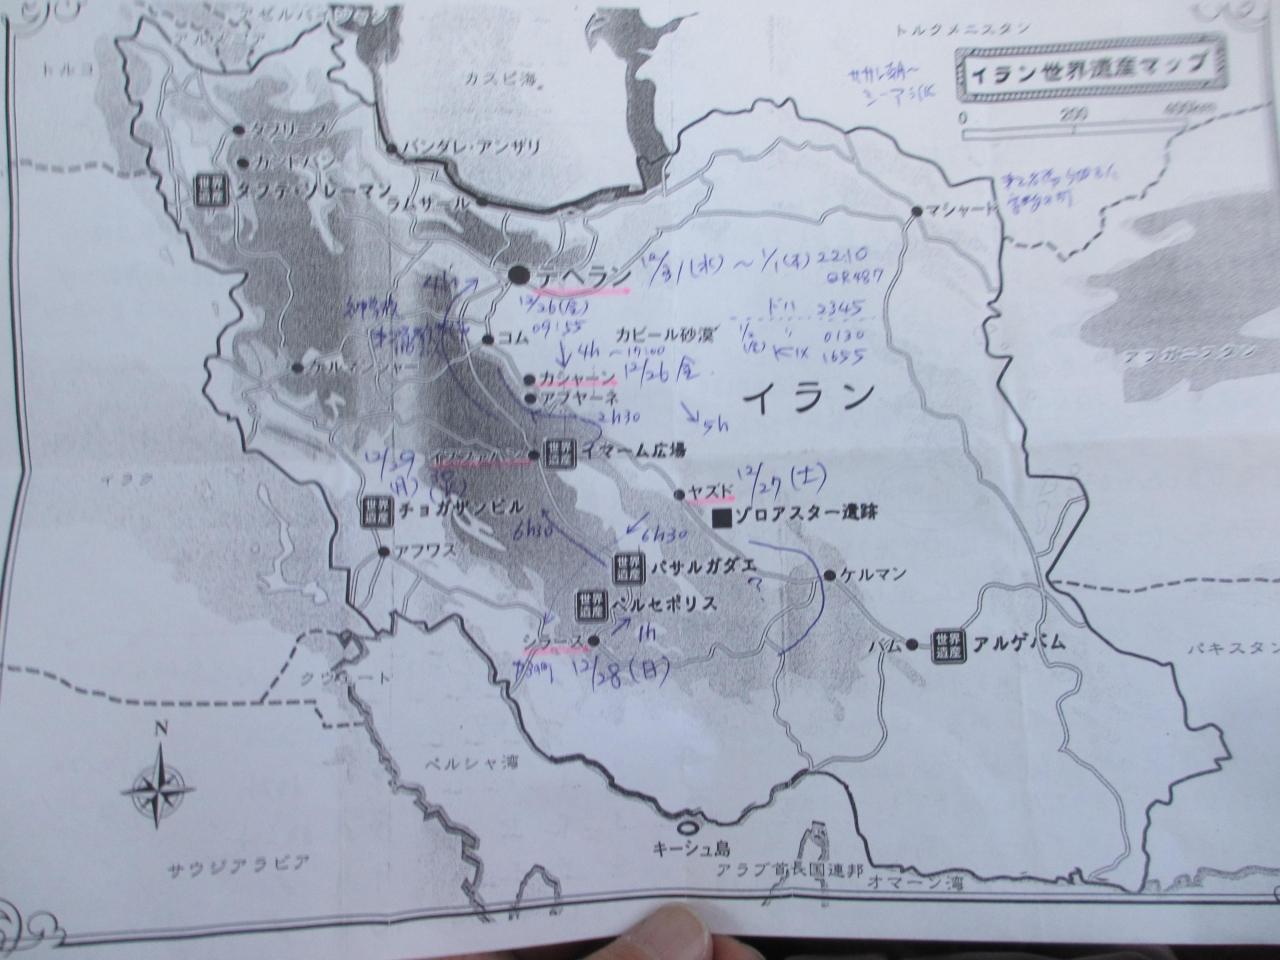 アゼルバイジャン
アルメニア
トルコ
カスピ海
トルクメニスタン
イラン世界遺産マップ
0 200 400km
ササン朝〜
シーア派
タブリーズ
カンドバン
バンダレ・アンザリ
世界遺産 タフテ・ソレーマン
ラムサール
マシャード
テヘラン
12/31(水) 〜 1/1(木) 22:10
QR487
ドハ 2345
0130
KIX 1655
12/26(金)
09:55
4h
コム
カビール砂漠
4h 〜 17:00
ケルマンシャー
カシャーン
12/26 金
アブヤーネ
イラン
2h30
5h
イスファハン
世界遺産 イマーム広場
12/29
(月)
ヤズド
12/27 (土)
イラク
アフガニスタン
世界遺産 チョガザンビル
ゾロアスター遺跡
6h30
6h30
アフワズ
世界遺産 パサルガダエ
?
ケルマン
世界遺産 ペルセポリス
1h
シラーズ
12/28(日)
バム
世界遺産 アルゲバム
パキスタン
クウェート
N
ペルシャ湾
サウジアラビア
キーシュ島
アラブ首長国連邦
オマーン湾